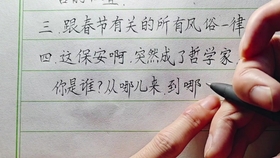 三.跟春节有关的所有风俗一律
四.这保安啊,突然成了哲学家
你是谁?从哪儿来,到哪